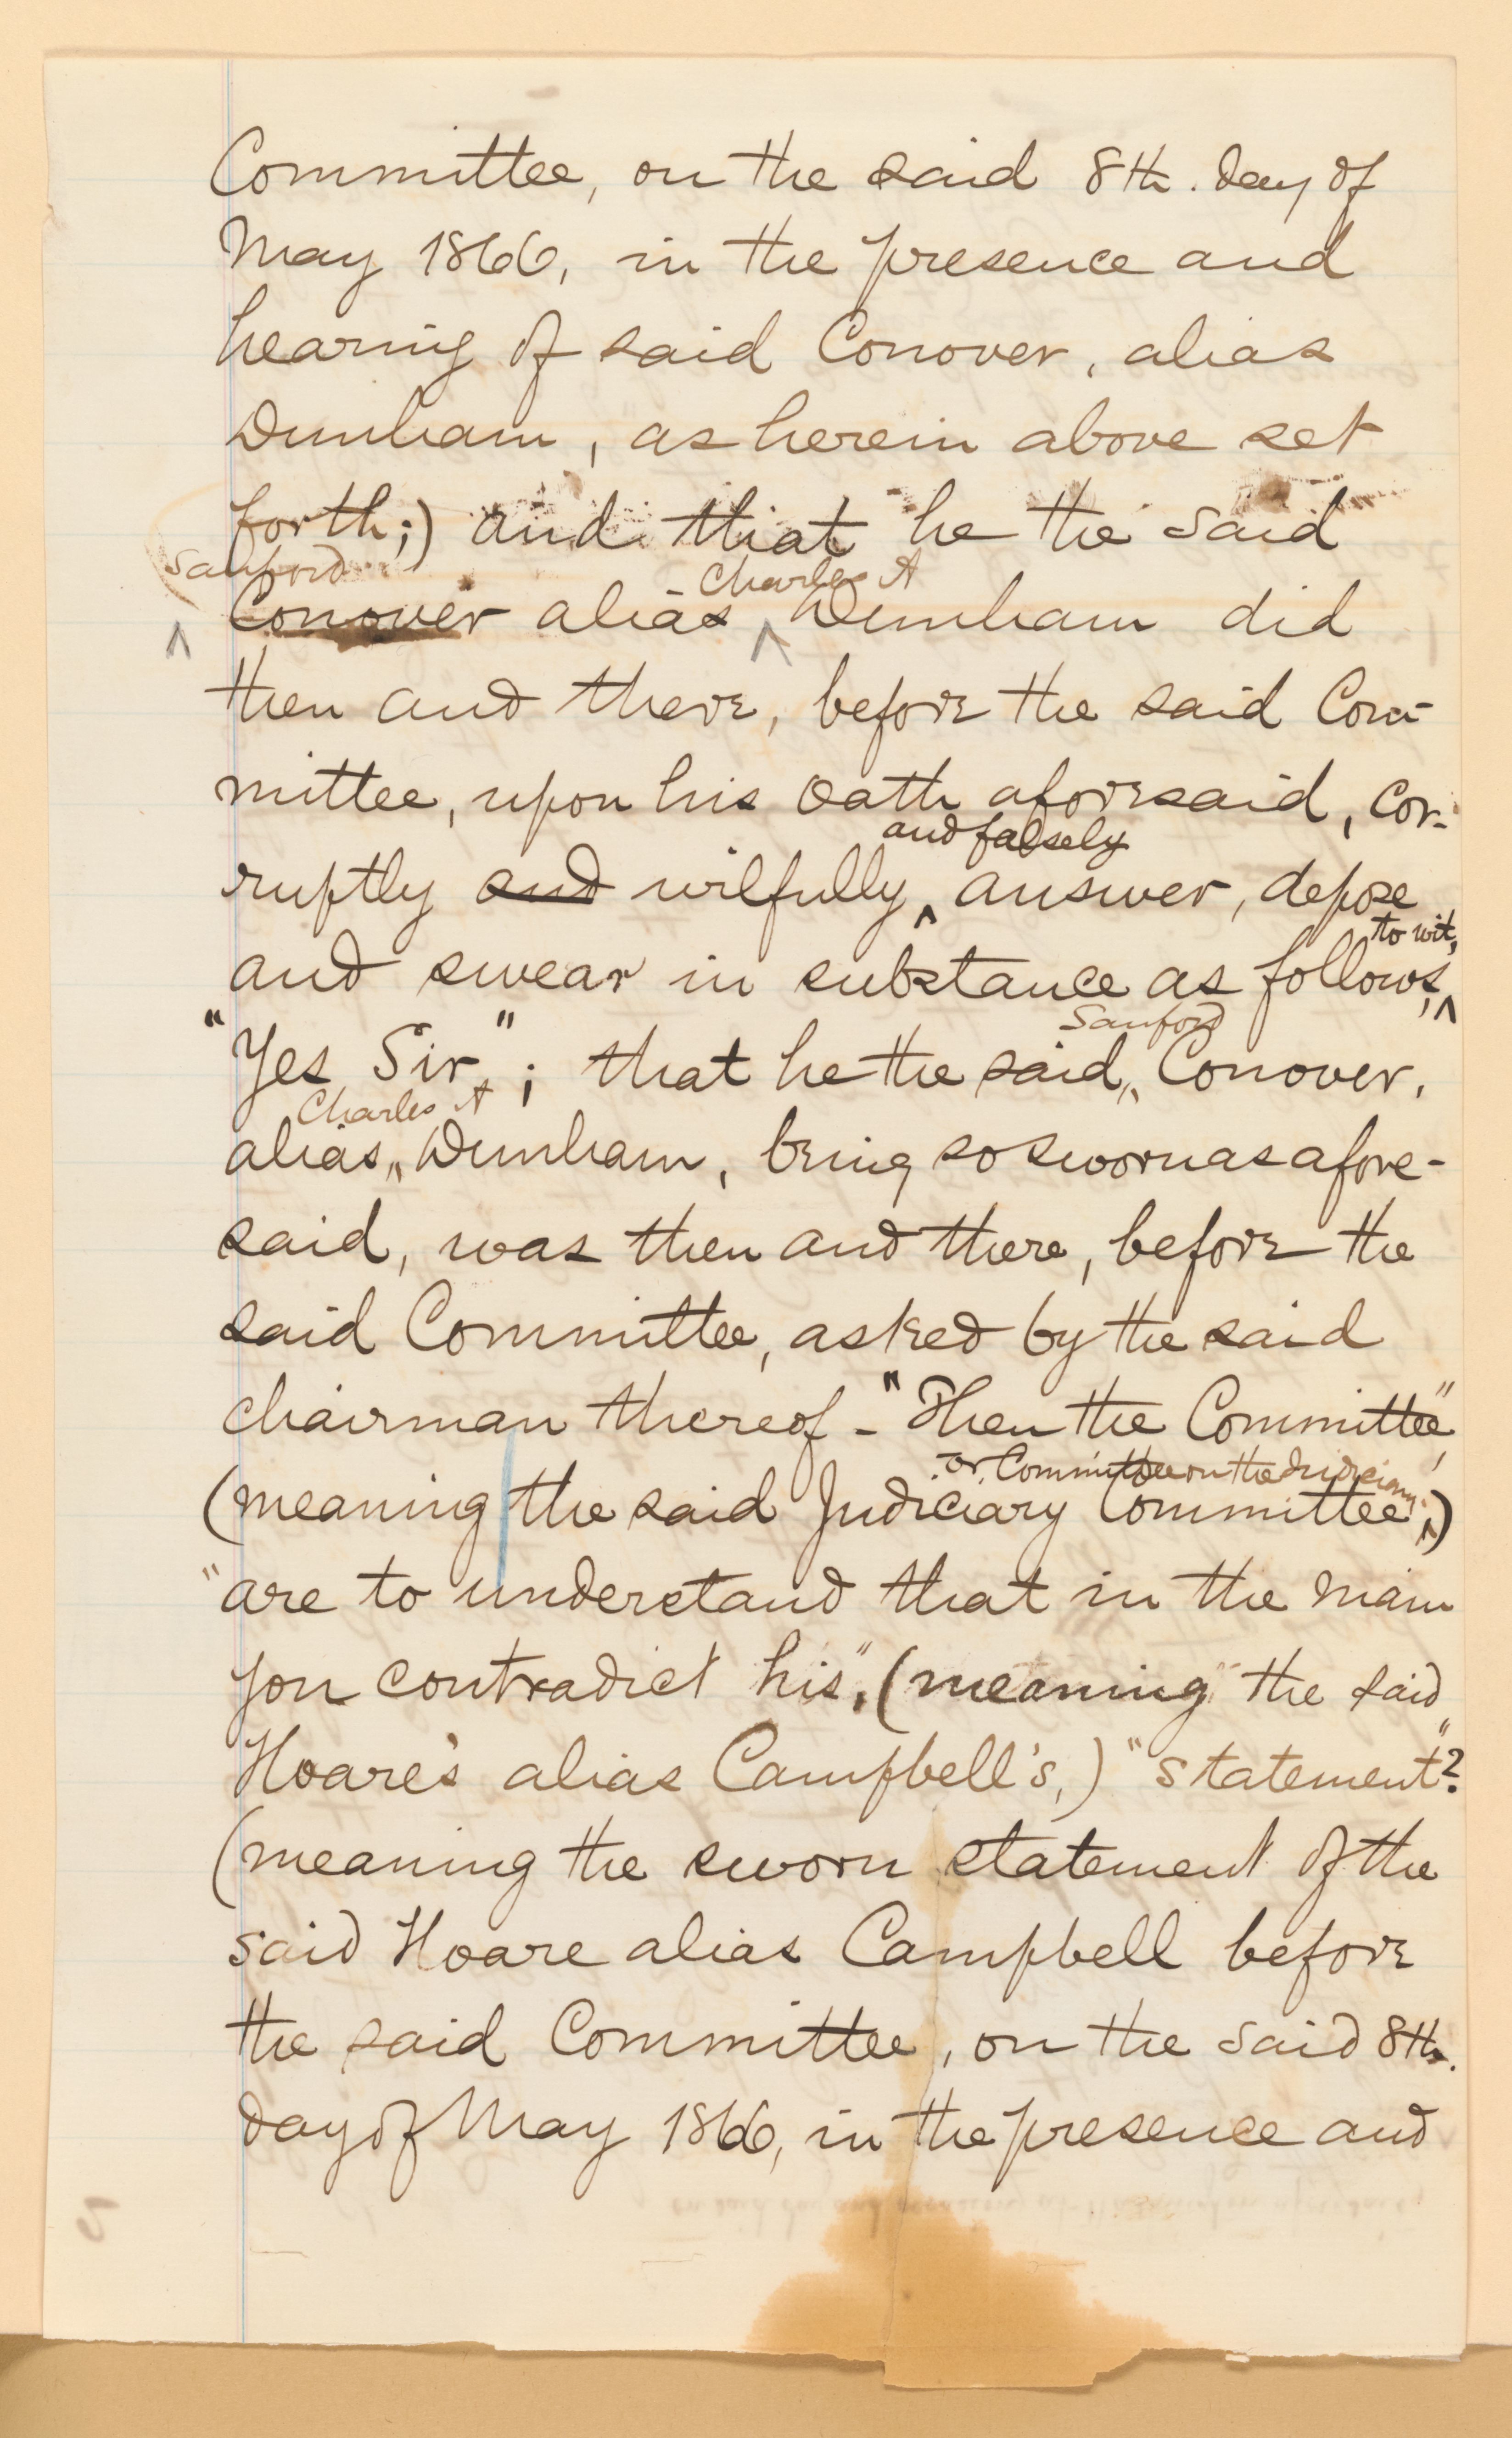 Committee, on the said 8th. day of
May 1866, in the presence and
hearing of said Conover, alias
Dunham, as herein above set
forth;) and that he the said
Sanford Charles A
Conover alias ^ Dunham did
then and there, before the said Com-
mittee, upon his oath aforesaid, cor-
and falsely
ruptly and wilfully ^ answer, depose
to wit,
and swear in substance as follows, ^
Sanford
"Yes Sir"; that he the said ^ Conover,
Charles A
alias ^ Dunham, being so sworn as afore-
said, was then and there, before the
said Committee, asked by the said
chairman thereof - "Then the Committee",
or Committee on the Judiciary
(meaning the said Judiciary Committee, ^)
"are to understand that in the main
you contradict his", (meaning the said
Hoare's alias Campbell's,) "statement"?
(meaning the sworn statement of the
said Hoare alias Campbell before
the said Committee, on the said 8th.
day of May 1866, in the presence and